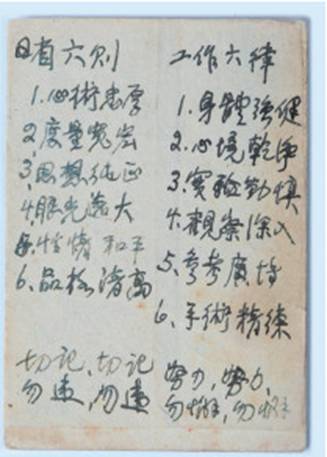 日省六則
1.心術忠厚
2.度量寬宏
3.思想純正
4.眼光遠大
5.性情和平
6.品格清高
切記,切記
勿違,勿違
工作六律
1.身體強健
2.心境乾淨
3.實驗勤慎
4.觀察深入
5.參考廣博
6.手術精練
努力,努力,
勿懈,勿懈